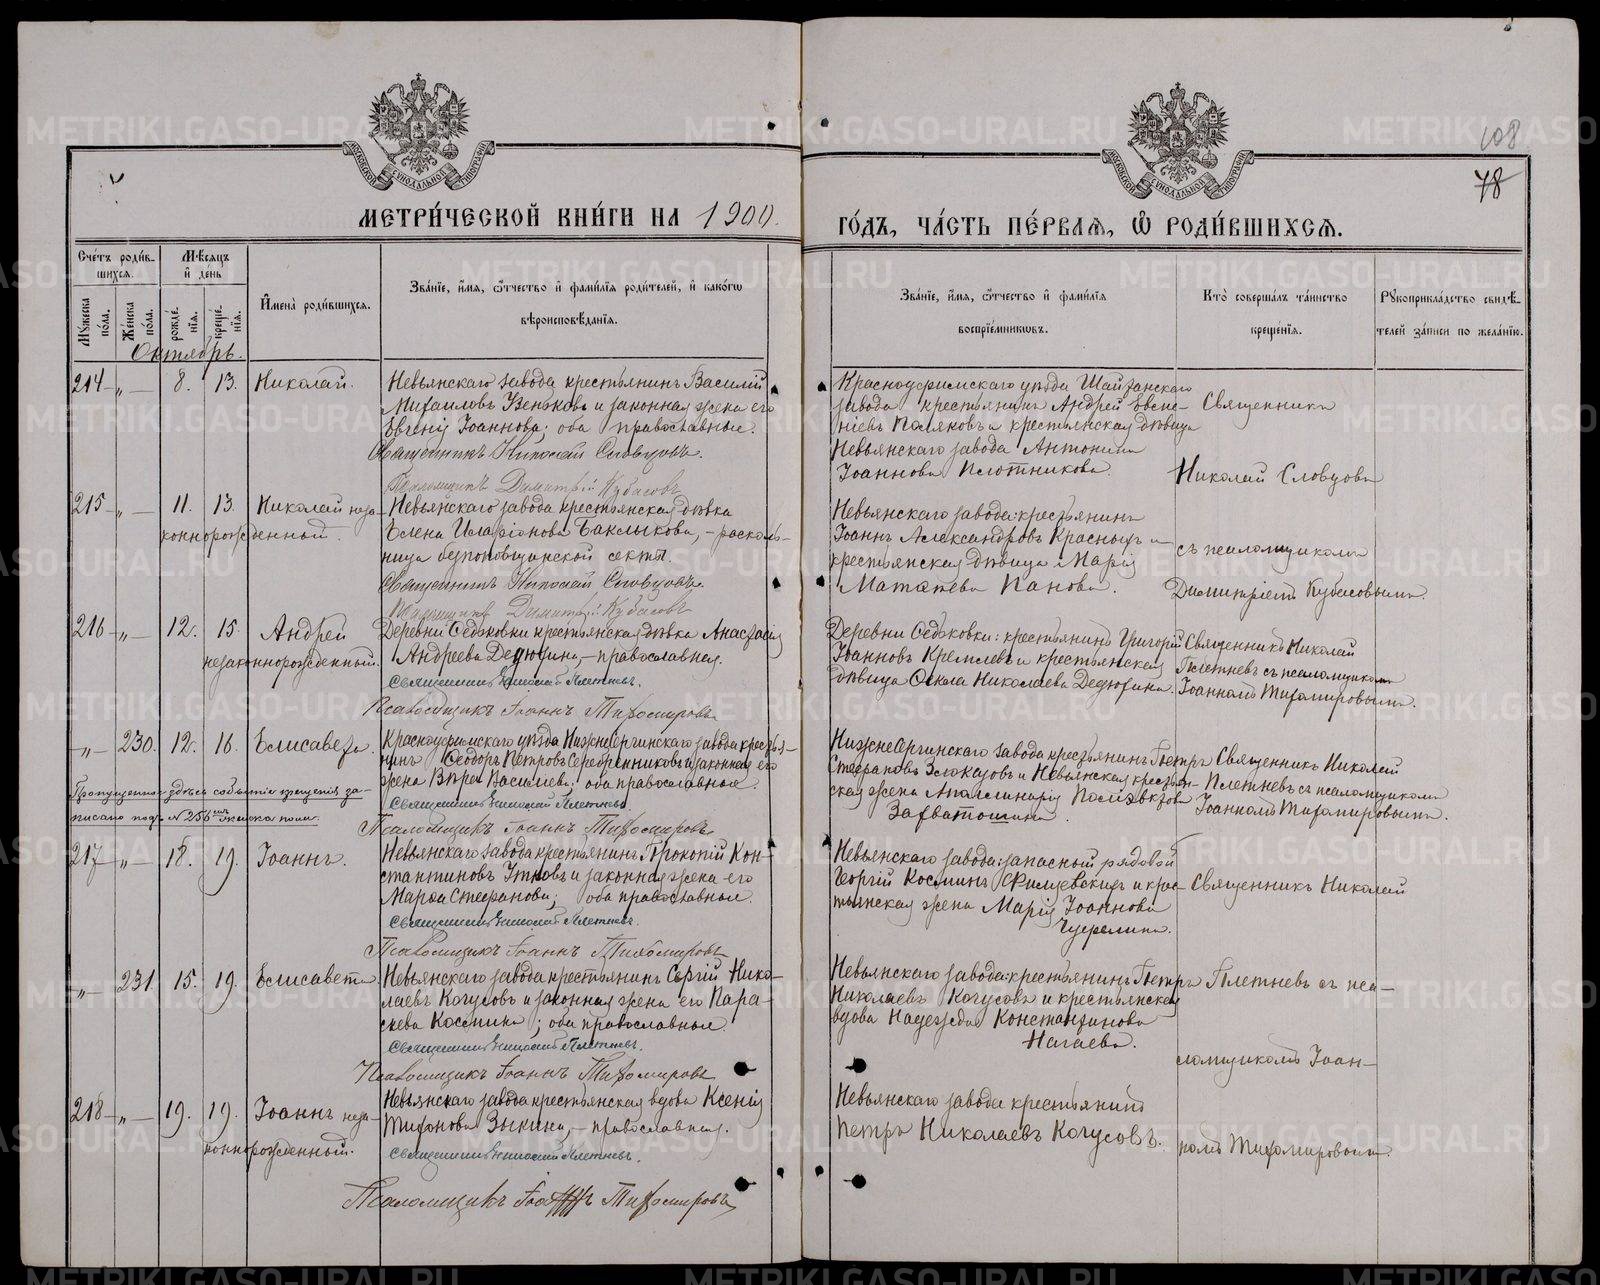 108
78
МЕТРИ́ЧЕСКОЙ КНИ́ГИ НА 1900.
ГО́ДЪ, ЧА́СТЬ ПЕ́РВАѦ, Ѽ РОДИ́ВШИХСѦ.
Сче́тъ роди́вшихся.
Мѣ́сяцъ и́ де́нь
Мꙋ́жеска по́ла.
Же́нска по́ла.
рожде́нїя.
креще́нїя.
И҆мена̀ роди́вшихся.
Зва́нїе, и҆́мя, ѻ҆́тчество и҆ фами́лїя роди́телей, и҆ како́гѡ
вѣроисповѣ́данїя.
Зва́нїе, и҆́мя, ѻ҆́тчество и҆ фами́лїя
воспрїе́мниковъ.
Кто̀ соверша́лъ та́инство
креще́нїя.
Рꙋкоприкла́дство свидѣ́-
телей за́писи по жела́нїю.
Октябрь.
214 — „ — 8. 13. Николай.
Невьянскаго завода крестьянинъ Василій
Михаиловъ и законная жена его
Евгенія Іоаннова; оба православные.
Священникъ Николай Словцовъ.
Псаломщикъ Димитрій Кубасовъ
Красноуфимскаго уѣзда Шайтанскаго
завода крестьянинъ Андрей Евге-
ніевъ Поляковъ и крестьянская дѣвица
Невьянскаго завода Антонина
Іоаннова Плотникова
Священникъ
Николай Словцовъ
215 — „ — 11. 13. Николай неза-
коннорожденный.
Невьянскаго завода крестьянская дѣвка
Елена Иларіонова Баклыкова, — расколь-
ница безпоповщинской секты.
Священникъ Николай Словцовъ
Псаломщикъ Димитрій Кубасовъ
Невьянскаго завода: крестьянинъ
Іоаннъ Александровъ Красныхъ и
крестьянская дѣвица Марія
Матвѣева Панова.
съ псаломщикомъ
Димитріемъ Кубасовымъ.
216 — „ — 12. 15. Андрей
незаконнорожденный.
Деревни Ѳедьковки крестьянская дѣвка Анастасія
Андреева Дедюхина, — православная.
Священникъ Николай Плетневъ.
Псаломщикъ Іоаннъ Тихомировъ
Деревни Ѳедьковки: крестьянинъ Григорій
Іоанновъ Кремлевъ и крестьянская
дѣвица Ѳекла Николаева Дедюхина.
Священникъ Николай
Плетневъ съ псаломщикомъ
Іоанномъ Тихомировымъ.
— „ — 230. 12. 16. Елисавета.
Красноуфимскаго уѣзда НижнеСергинскаго завода крестья-
нинъ Ѳеодоръ Петровъ Серебренниковъ и законная его
жена Вѣра Василева; оба православные.
Священникъ Николай Плетневъ.
Псаломщикъ Іоаннъ Тихомировъ
НижнеСергинскаго завода крестьянинъ Петръ
Стефановъ Злоказовъ и Невьянская крестьян-
ская жена Аполлинарія Поліевктова
Захватошина.
Священникъ Николай
Плетневъ съ псаломщикомъ
Іоанномъ Тихомировымъ.
Пропущенное здѣсь событіе крещенія за-
писано подъ № 256мъ женска пола.
217 — „ — 18. 19. Іоаннъ.
Невьянскаго завода крестьянинъ Прокопій Кон-
стантиновъ и законная жена его
Марѳа Стефанова; оба православные.
Священникъ Николай Плетневъ.
Псаломщикъ Іоаннъ Тихомировъ
Невьянскаго завода: запасный рядовой
Георгій Косминъ и крес-
тьянская жена Марія Іоаннова
Священникъ Николай
„ — 231. 15. 19. Елисавета.
Невьянскаго завода крестьянинъ Сергій Нико-
лаевъ Качусовъ и законная жена его Пара-
скева Космина; оба православные.
Священникъ Николай Плетневъ.
Псаломщикъ Іоаннъ Тихомировъ
Невьянскаго завода: крестьянинъ Петръ
Николаевъ Качусовъ и крестьянская
вдова Надежда Константинова
Нагаева.
Плетневъ съ пса-
ломщикомъ Іоан-
218 — „ — 19. 19. Іоаннъ неза-
коннорожденный.
Невьянскаго завода крестьянская вдова Ксенія
Тихонова Зыкина, — православная.
Священникъ Николай Плетневъ.
Псаломщикъ Іоаннъ Тихомировъ
Невьянскаго завода крестьянинъ
Петръ Николаевъ Качусовъ.
номъ Тихомировымъ.
METRIKI.GASO-URAL.RU